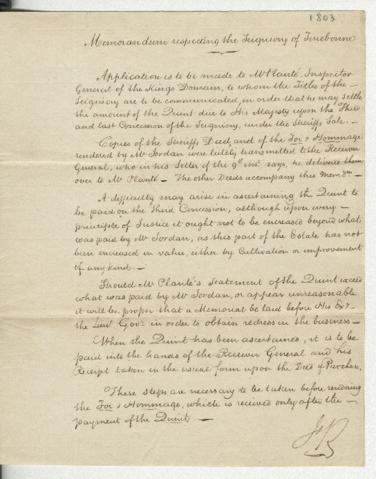 1803
Memorandum respecting the Seigniory of Terrebonne
Application is to be made to Mr Planté, Inspector
General of the Kings Domain, to whom the Titles of the
Seigniory are to be communicated, in order that he may settle
the amount of the Quint due to His Majesty upon the Third
and last Concession of the Seigniory, under the Sheriffs Sale.
Copies of the Sheriffs Deed and of the Foi & Hommage
rendered by Mr Jordan were lately transmitted to the Receiver
General, who in his Letter of the 9th inst. says, he delivered them
over to Mr Planté — The other Deeds accompany this
A difficulty may arise in ascertaining the Quint to
be paid on the Third Concession, although upon every
principle of Justice it ought not to be increased beyond what
was paid by Mr Jordan, as this part of the Estate has not
been increased in value, either by Cultivation or improvement
of any kind. —
Should Mr Planté's Statement of the Quint exceed
what was paid by Mr Jordan, or appear unreasonable
it will be proper that a Memorial be laid before His Exy
the Lieut Govr in order to obtain redress in the business —
When the Quint has been ascertained, it is to be
paid into the hands of the Receiver General and his
Receipt taken in the usual form upon the Deed of Purchase,
These steps are necessary to be taken before rendering
the Foi & Hommage, which is received only after the
payment of the Quint —